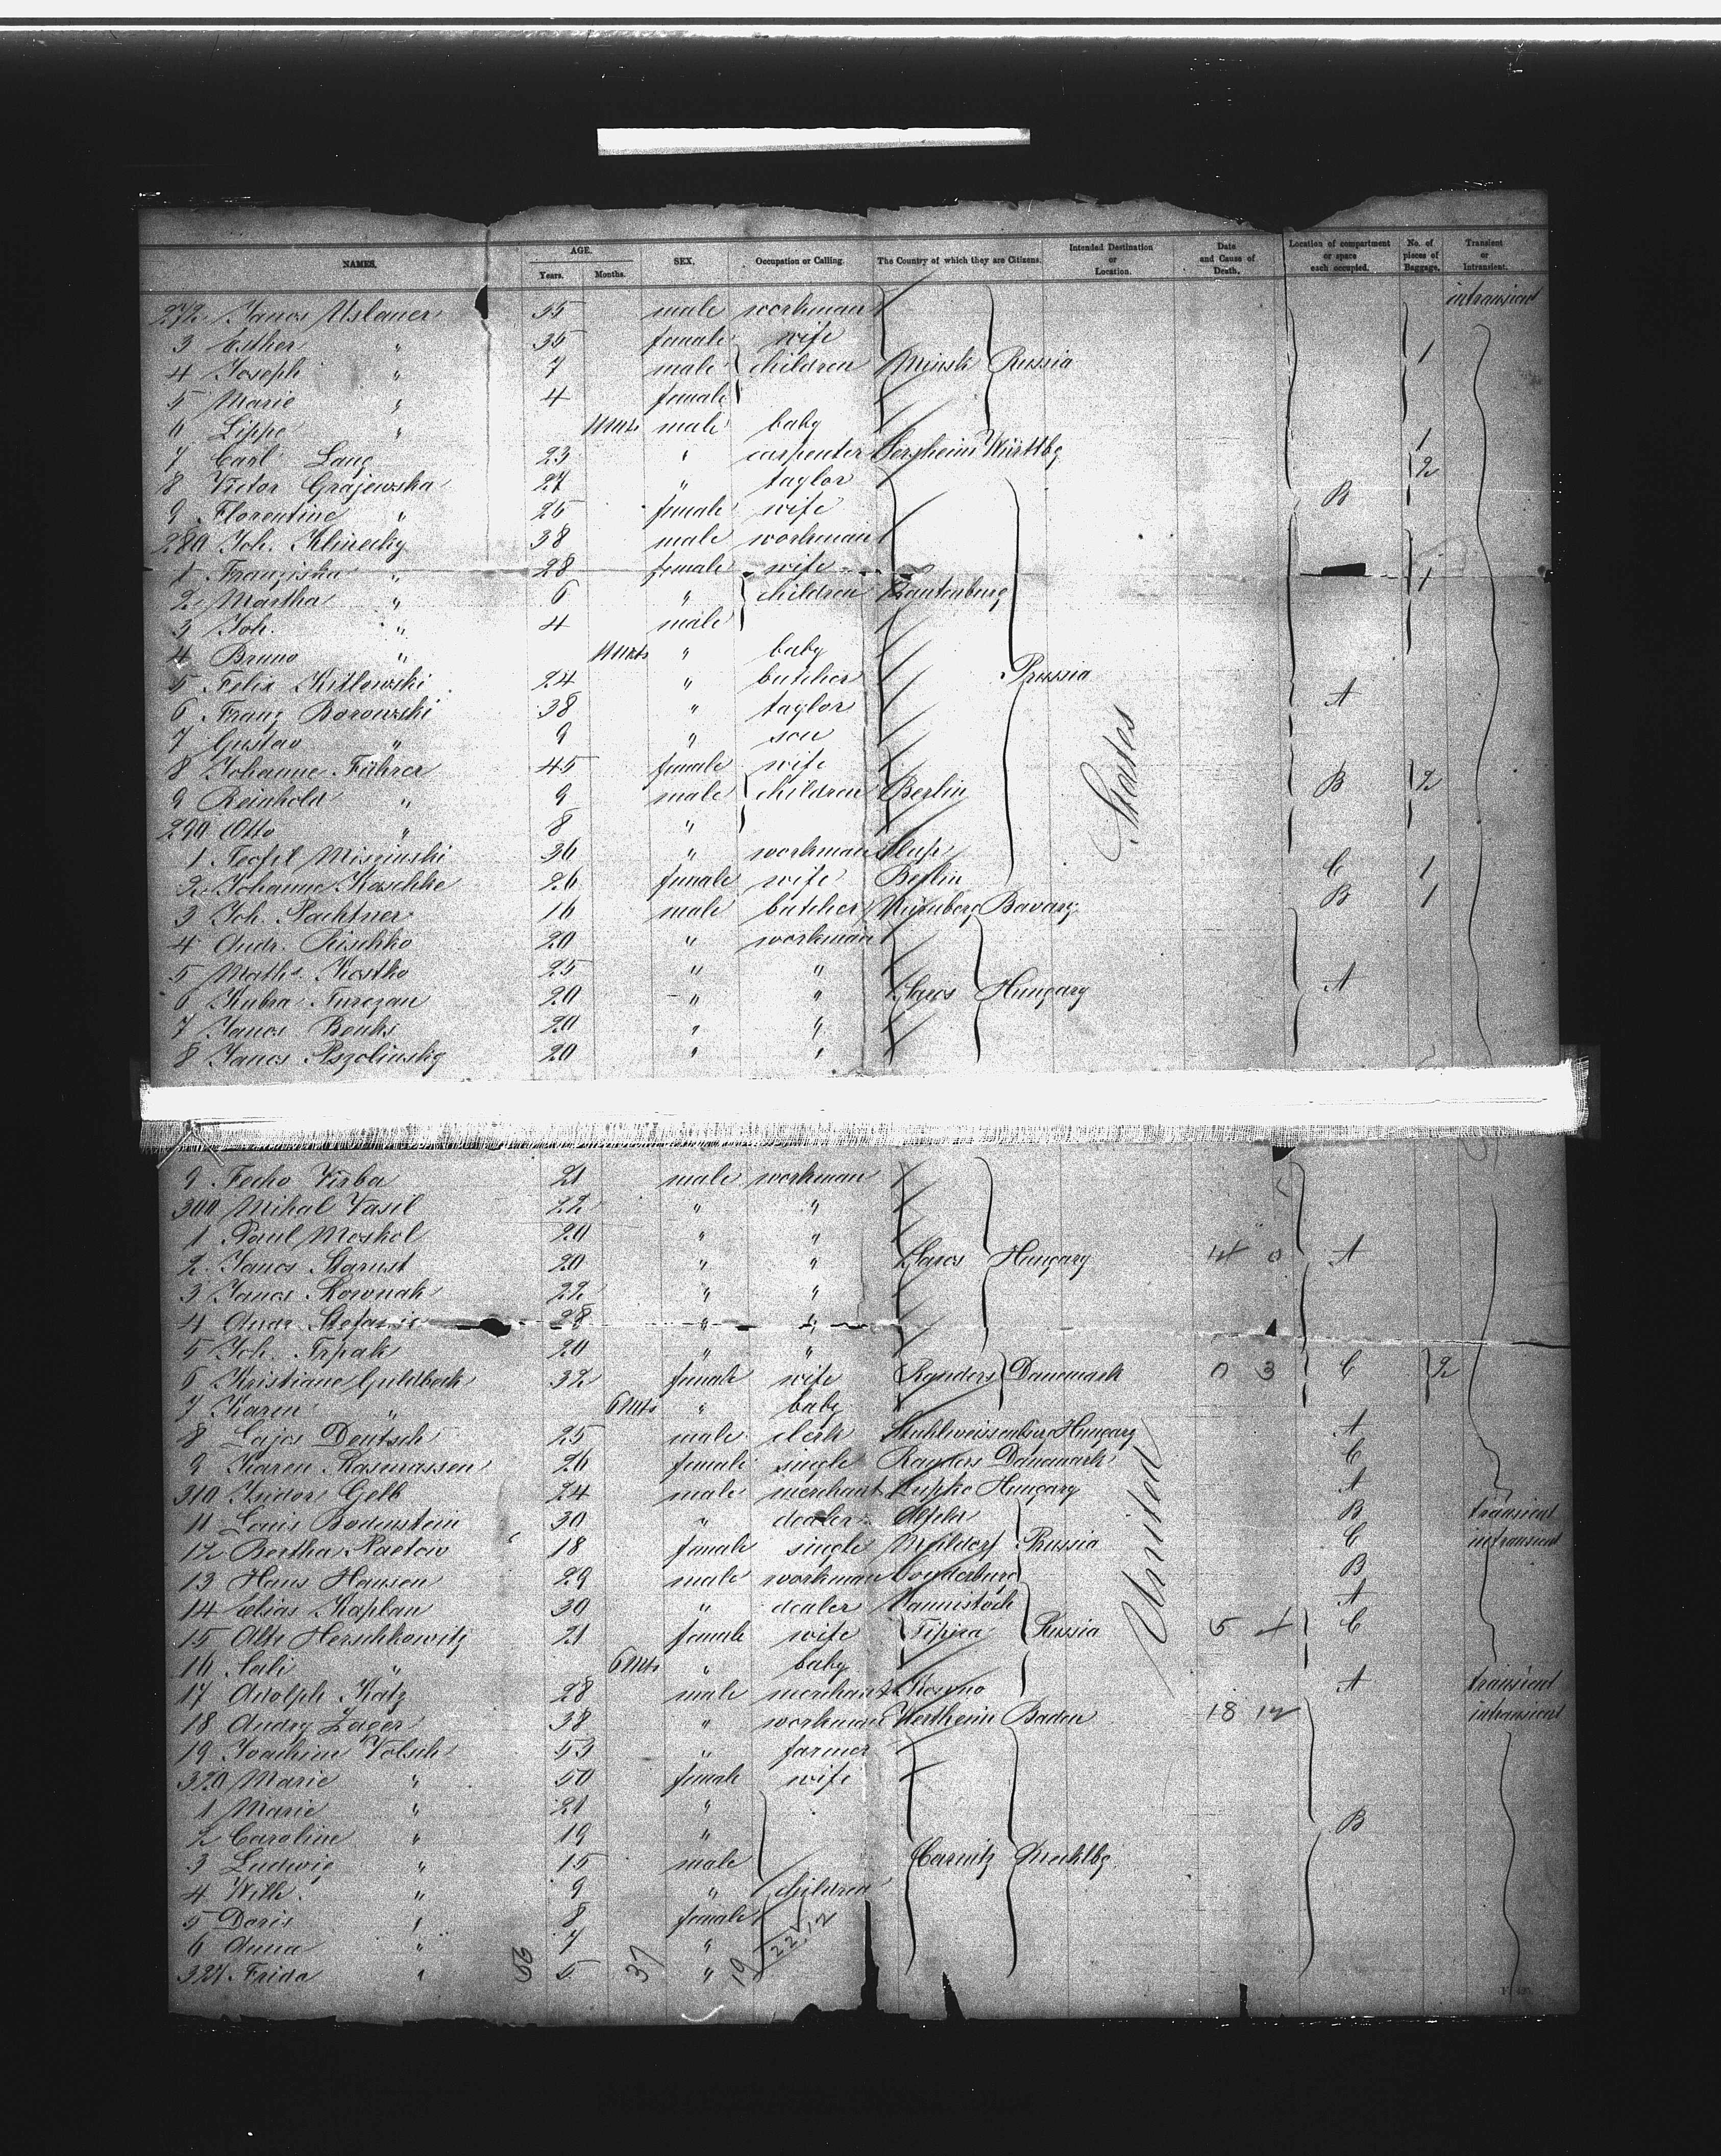 NAMES. AGE. Years. Months. SEX. Occupation or Calling. The Country of which they are Citizens. Intended Destination or Location. Date and Cause of Death. Location of compartment or space each occupied. No. of pieces of Baggage. Transient or Intransient.
272 Janos Uslaner 35 male workman intransient
3 Esther " 35 female wife 1
4 Joseph " 7 male children Minsk Russia
5 Marie " 4 female
6 Lippe " 11 Mts male baby
7 Carl Lang 23 " carpenter Gersheim Württbg 1
8 Victor Grajewska 27 " taylor 2
9 Florentine " 26 female wife B
280 Joh. Klinecky 38 male workman
1 Franziska " 28 female wife 1
2 Martha " 6 " children Lautenburg
3 Joh. " 4 male
4 Bruno " 11 Mts " baby
5 Felix Kitlowski 24 " butcher Prussia
6 Franz Borowski 38 " taylor A
7 Gustav " 9 " son
8 Johanne Führer 45 female wife
9 Reinhold " 9 male children Berlin B 2
290 Otto " 8 "
1 Teofil Misginski 36 " workman Slup
2 Johanne Kaschke 26 female wife Berlin C 1
3 Joh. Pachtner 16 male butcher Nürnberg Bavary B 1
4 Andr. Kischko 20 " workman
5 Math. Kostko 25 " "
6 Kubra Turezan 20 " " Saros Hungary A
7 Janos Benks 20 " "
8 Janos Pszolinsky 20 " "
States
9 Fecho Virba 21 male workman
300 Mihal Vasil 22 " "
1 Paul Moskol 20 " "
2 Janos Starust 20 " " Saros Hungary 4 0 A
3 Janos Kownak 22 " "
4 Andr. 28 " "
5 Joh. Trpak 20 " "
6 Kristiane Guldbeck 32 female wife Randers Danemark 0 3 C 2
7 Karen " 6 Mts " baby
8 Lajos Deutsch 25 male clerk Stuhlweissenburg Hungary A
9 Karen Rasmussen 26 female single Randers Danemark C
310 Isidor Gelb 24 male merchant Lupke Hungary A
11 Louis Bodenstein 30 " dealer B transient
12 Bertha Naetow 18 female single Mildorf Prussia C intransient
13 Hans Hansen 29 male workman Sonderburg B
14 Elias Kaplan 30 " dealer A
15 Alte Herschkowitz 21 female wife Russia 5 C
16 Sali " 6 Mts " baby
17 Adolph Katz 28 male merchant Kowno A transient
18 Andry Zager 38 " workman Wertheim Baden 18 12 intransient
19 Joachim Völsch 53 " farmer
320 Marie " 50 female wife
1 Marie " 21 "
2 Caroline " 19 " B
3 Ludwig " 15 male Carnitz Mecklbg.
4 Wilh. " 9 " children
5 Doris " 8 female
6 Anna " 7 "
327 Frida " 5 "
United
56 37 19 22.12